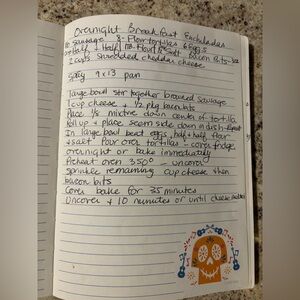 Overnight Breakfast Enchiladas
1lb Sausage 8- Flour tortillas 6 Eggs
Half + Half 1TB Flour Salt Bacon Bits
2 cups Shredded cheddar cheese
Spray 9x13 pan
Large bowl stir together browned Sausage
1 cup cheese + 1/2 pkg baconbits
Place 1/3 mixture down center of tortilla
Roll up + place seam side down in dish
In large bowl beat eggs, half + half flour
+ salt Pour over tortillas - cover fridge
overnight or bake immediately
Preheat oven 350° - uncover
Sprinkle remaining cup cheese then
bacon bits
Cover bake for 35 minutes
Uncover + 10 minutes or until cheese